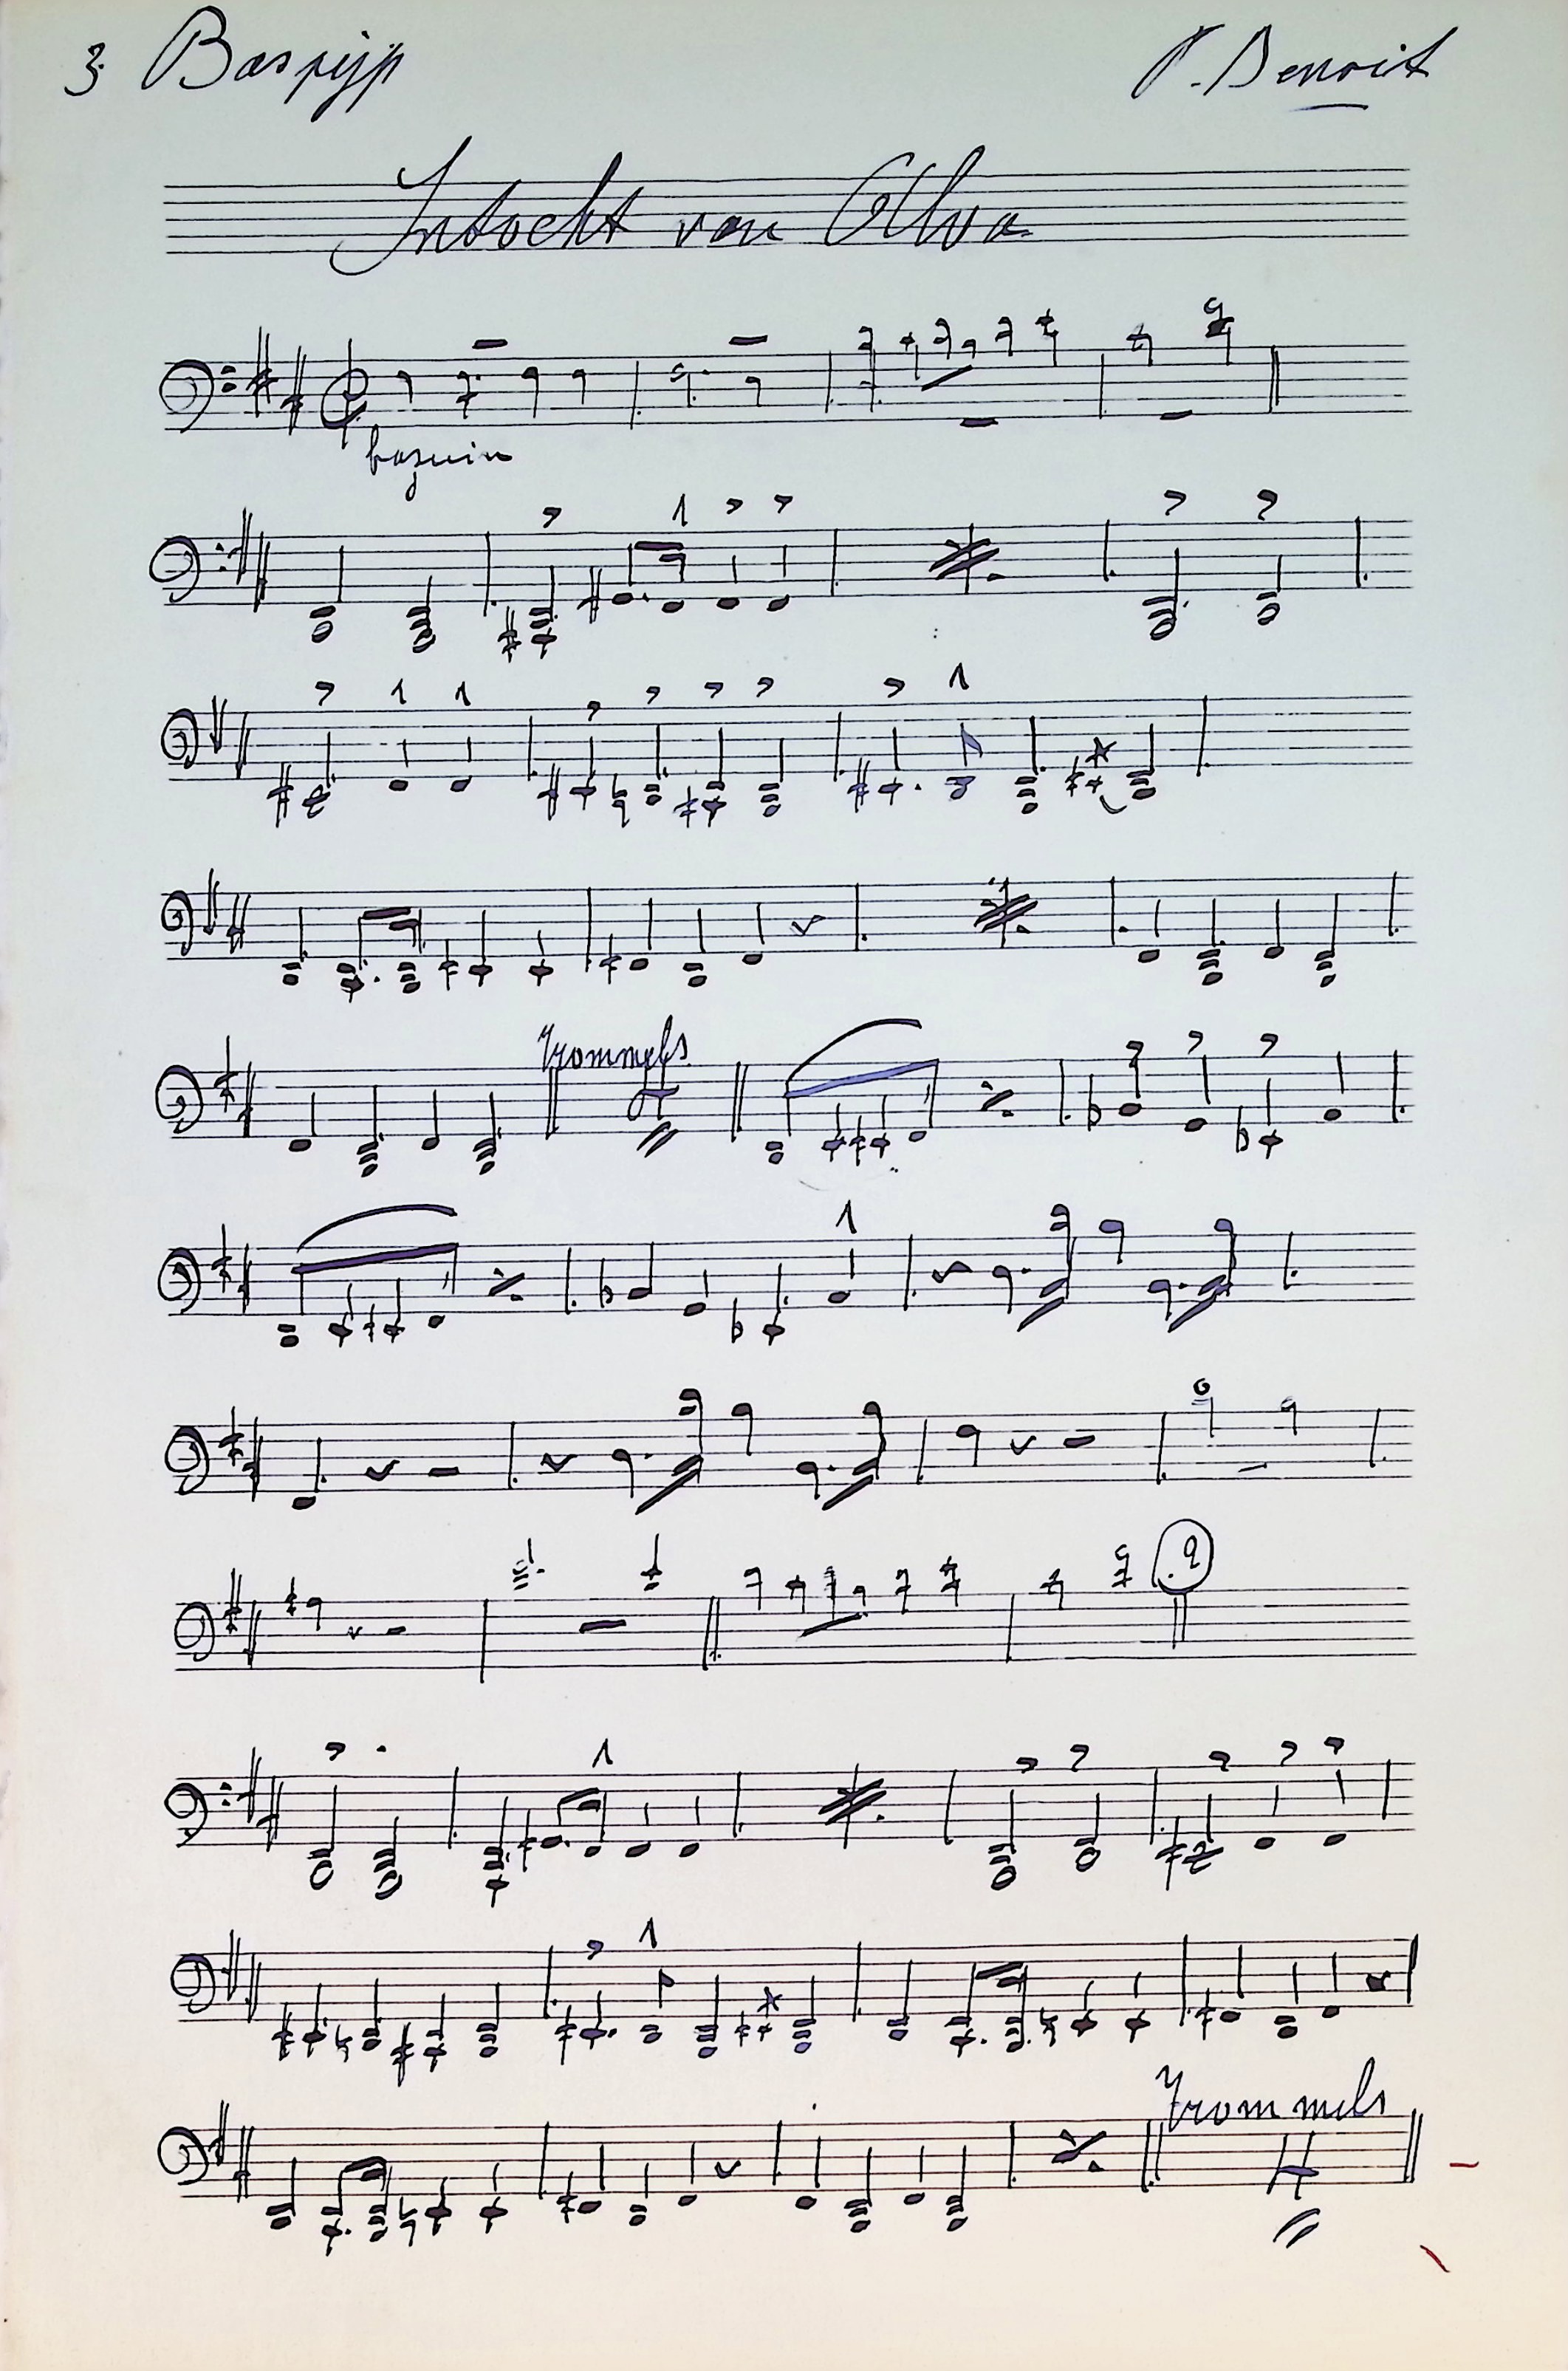 3 Baspijp
P. Benoit
Intocht van Alva
bazuin
Trommels
Trommels